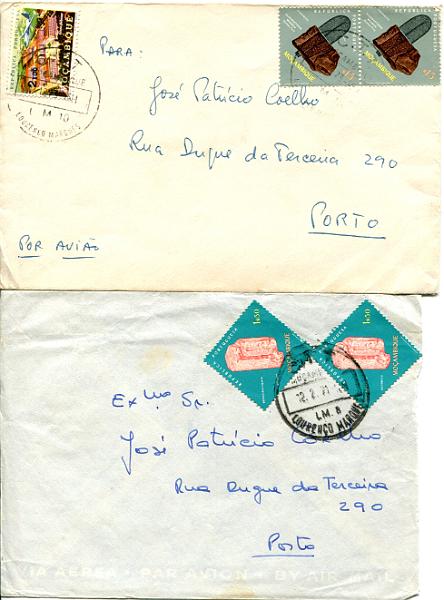 REPÚBLICA PORTUGUESA
2$00
MOÇAMBIQUE
L.M. 10
LOURENÇO MARQUES
MOÇAMBIQUE
PARA:
José Patrício Coelho
Rua Duque da Terceira 290
PORTO
POR AVIÃO
REPÚBLICA PORTUGUESA
1$50
MOÇAMBIQUE
REPÚBLICA PORTUGUESA
1$50
MOÇAMBIQUE
12.2.71
L.M. 8
LOURENÇO MARQUES
Exmo. Sr.
José Patrício Coelho
Rua Duque da Terceira
290
Porto
VIA AEREA · PAR AVION · BY AIR MAIL